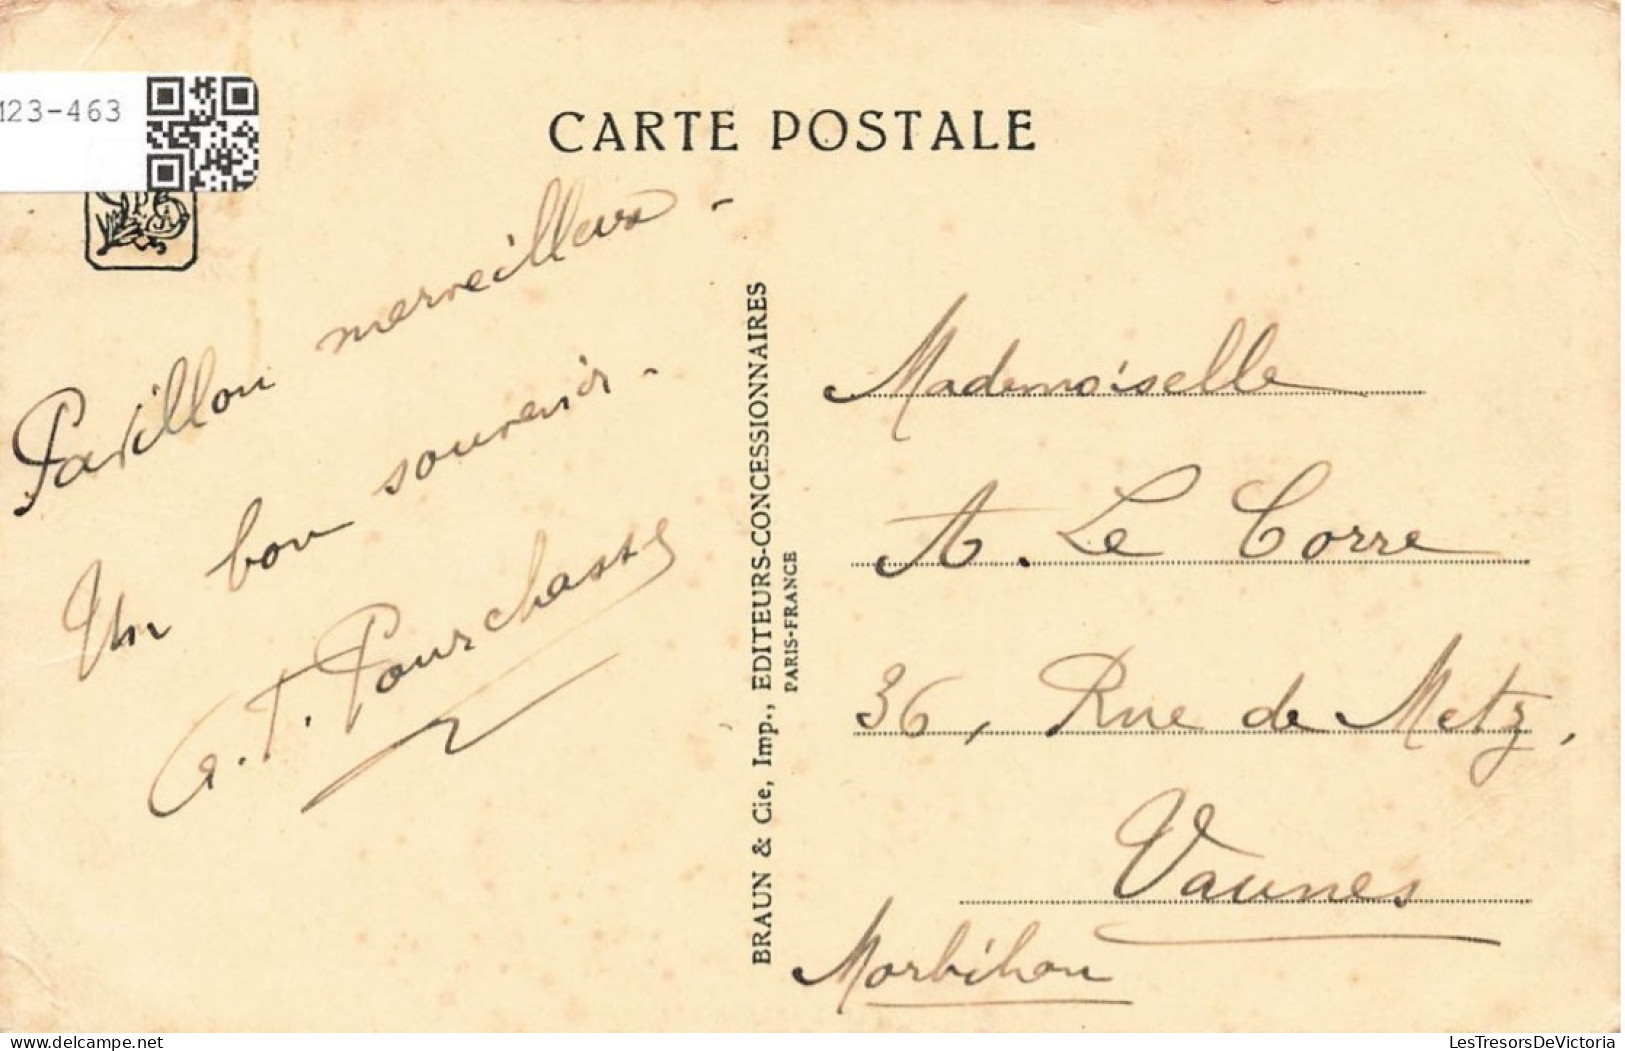 M23-463
CARTE POSTALE
Pavillon merveilleux -
Un bon souvenir -
BRAUN & Cie, Imp., EDITEURS-CONCESSIONNAIRES
PARIS-FRANCE
Mademoiselle
A. Le Corre
36, Rue de Metz,
Vannes
Morbihan
www.delcampe.net
LesTresorsDeVictoria